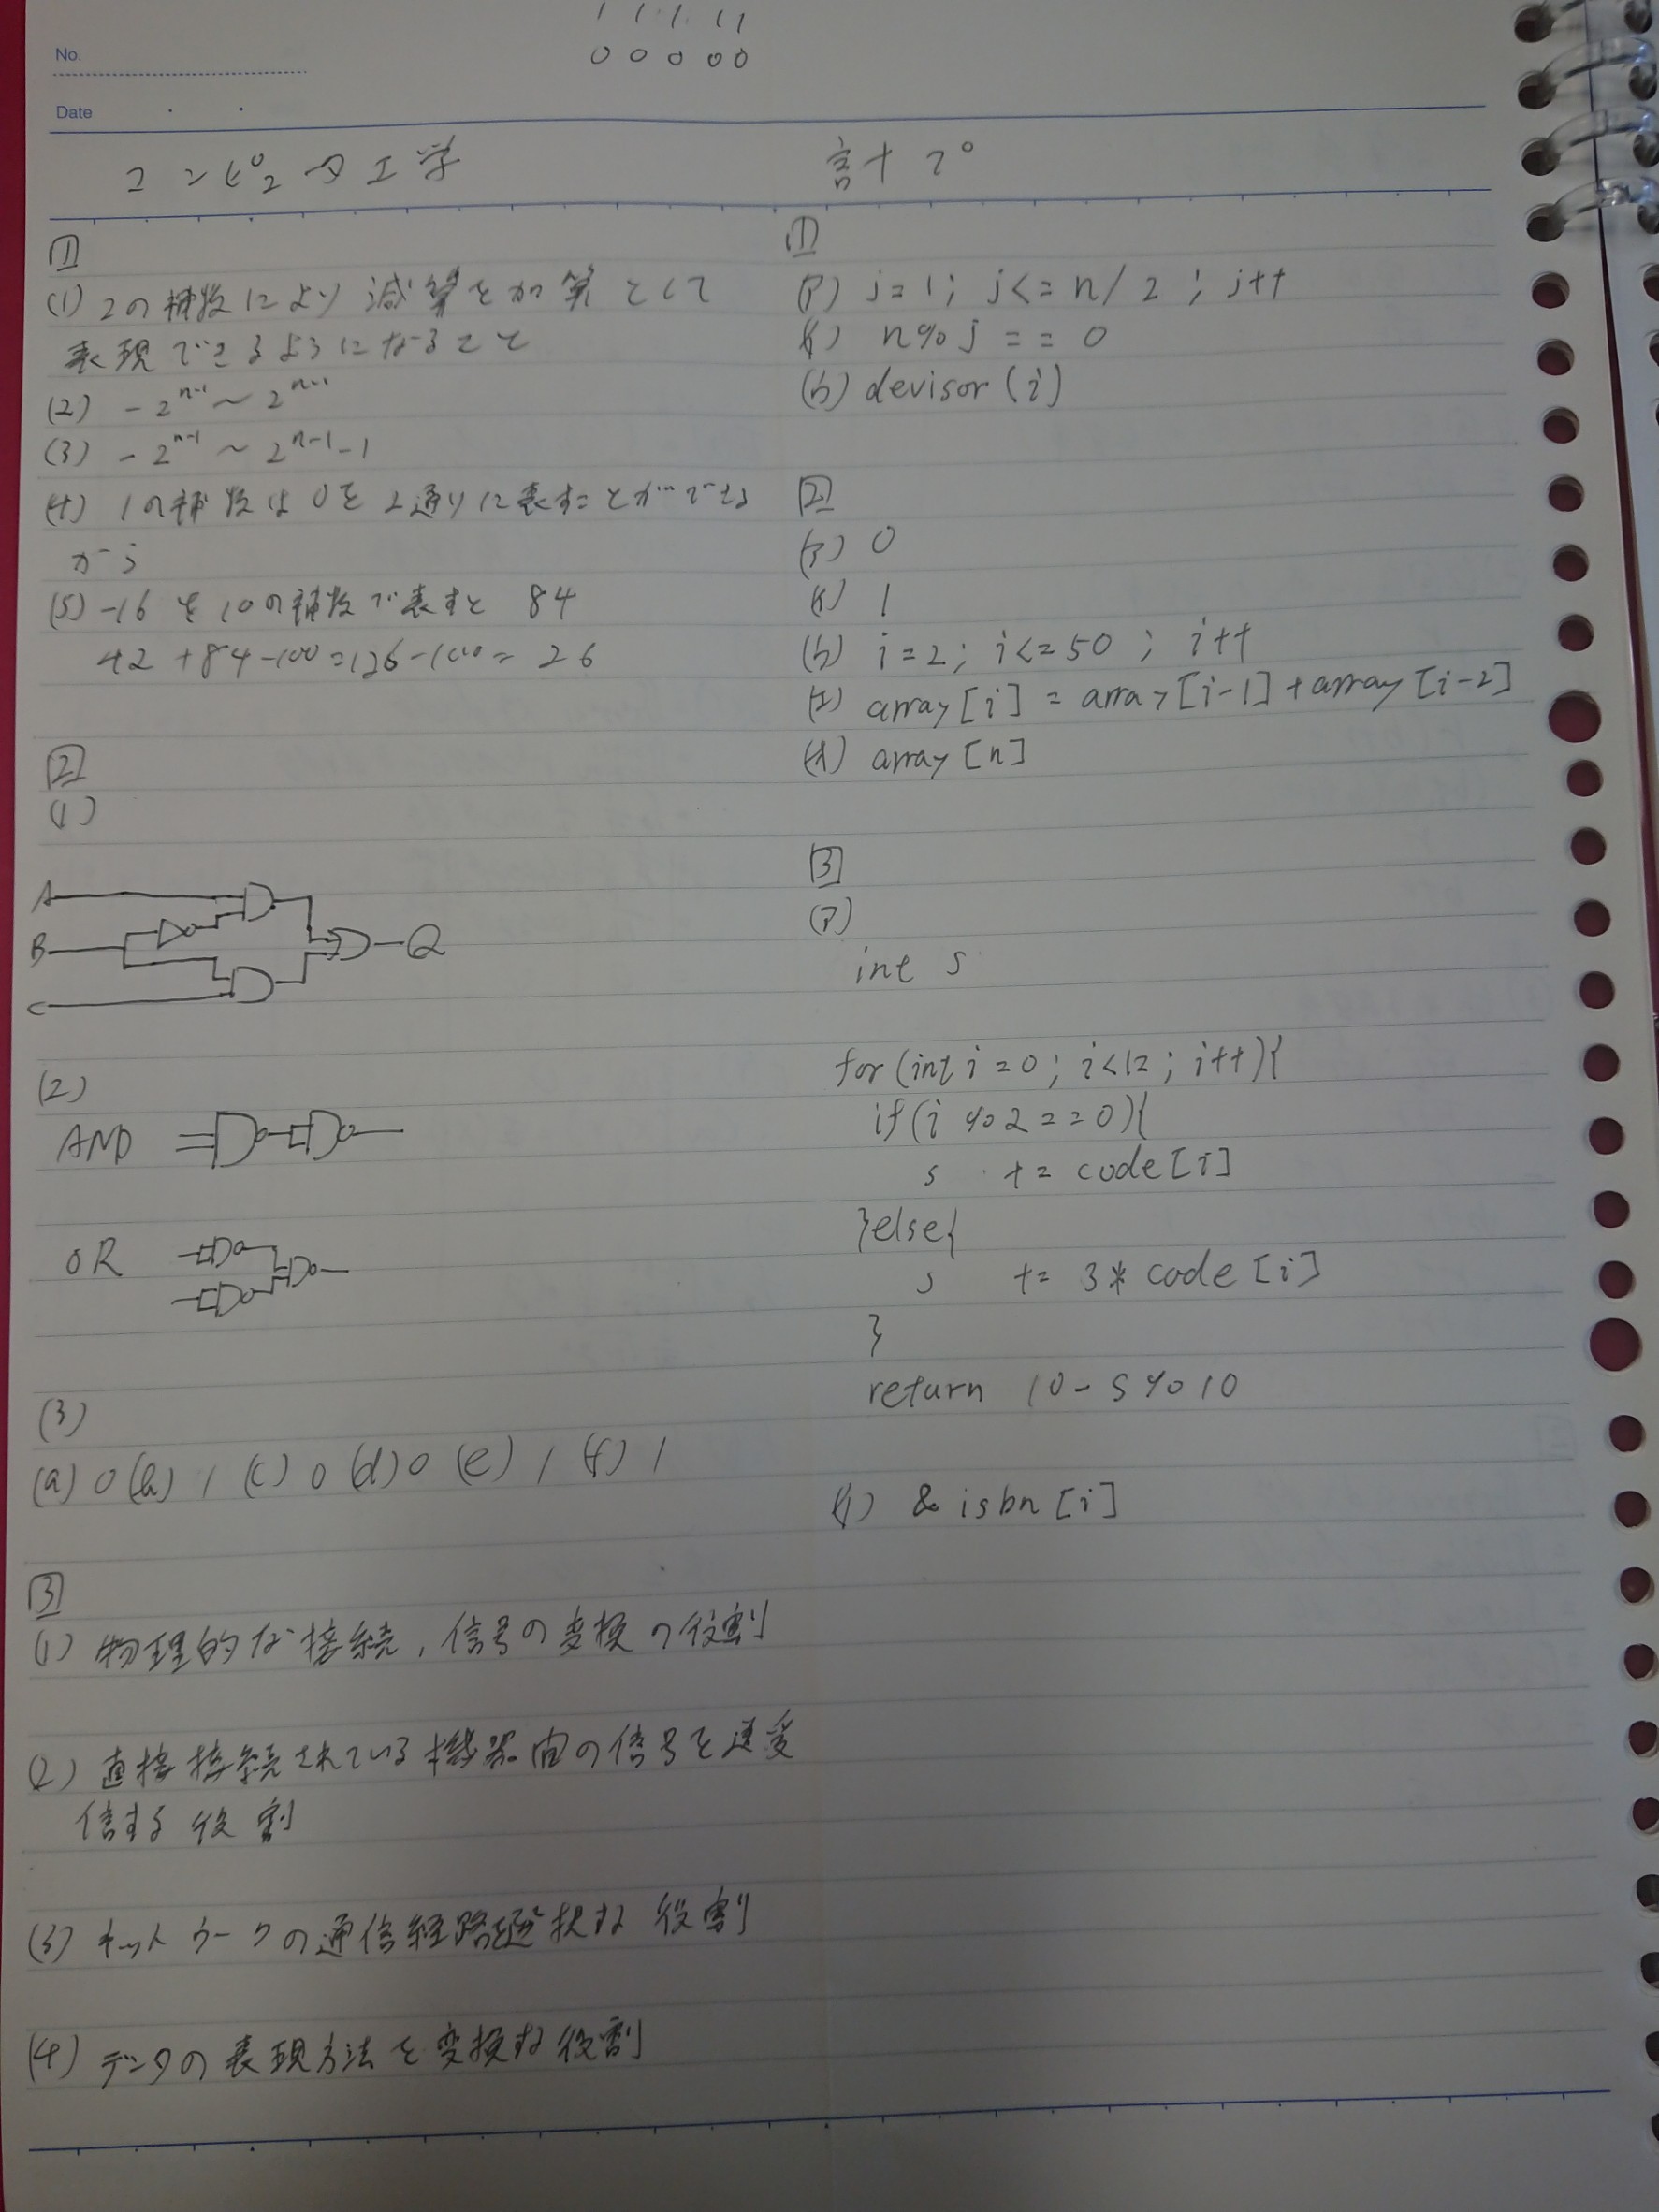 1 1 1 1 1
0 0 0 0 0
No.
Date
コンピュータ工学
1
(1) 2の補数により減算を加算として
表現できるようになること
(2) -2^{n-1} ~ 2^{n-1}
(3) -2^{n-1} ~ 2^{n-1}-1
(4) 1の補数は0を2通りに表すことができる
から
(5) -16を10の補数で表すと 84
42+84-100=126-100=26
2
(1)
A
B
Q
C
(2)
AND
OR
(3)
(a) 0 (b) 1 (c) 0 (d) 0 (e) 1 (f) 1
3
(1) 物理的な接続,信号の変換の役割
(2) 直接接続されている機器間の信号を送受
信する役割
(3) ネットワークの通信経路を選択する役割
(4) データの表現方法を変換する役割
計プ
1
(ア) j=1; j<=n/2; j++
(イ) n%j==0
(ウ) devisor(i)
2
(ア) 0
(イ) 1
(ウ) i=2; i<=50; i++
(エ) array[i] = array[i-1]+array[i-2]
(オ) array[n]
3
(ア)
int s
for(int i=0; i<12; i++){
if(i%2==0){
s += code[i]
}else{
s += 3*code[i]
}
return 10-s%10
(イ) &isbn[i]